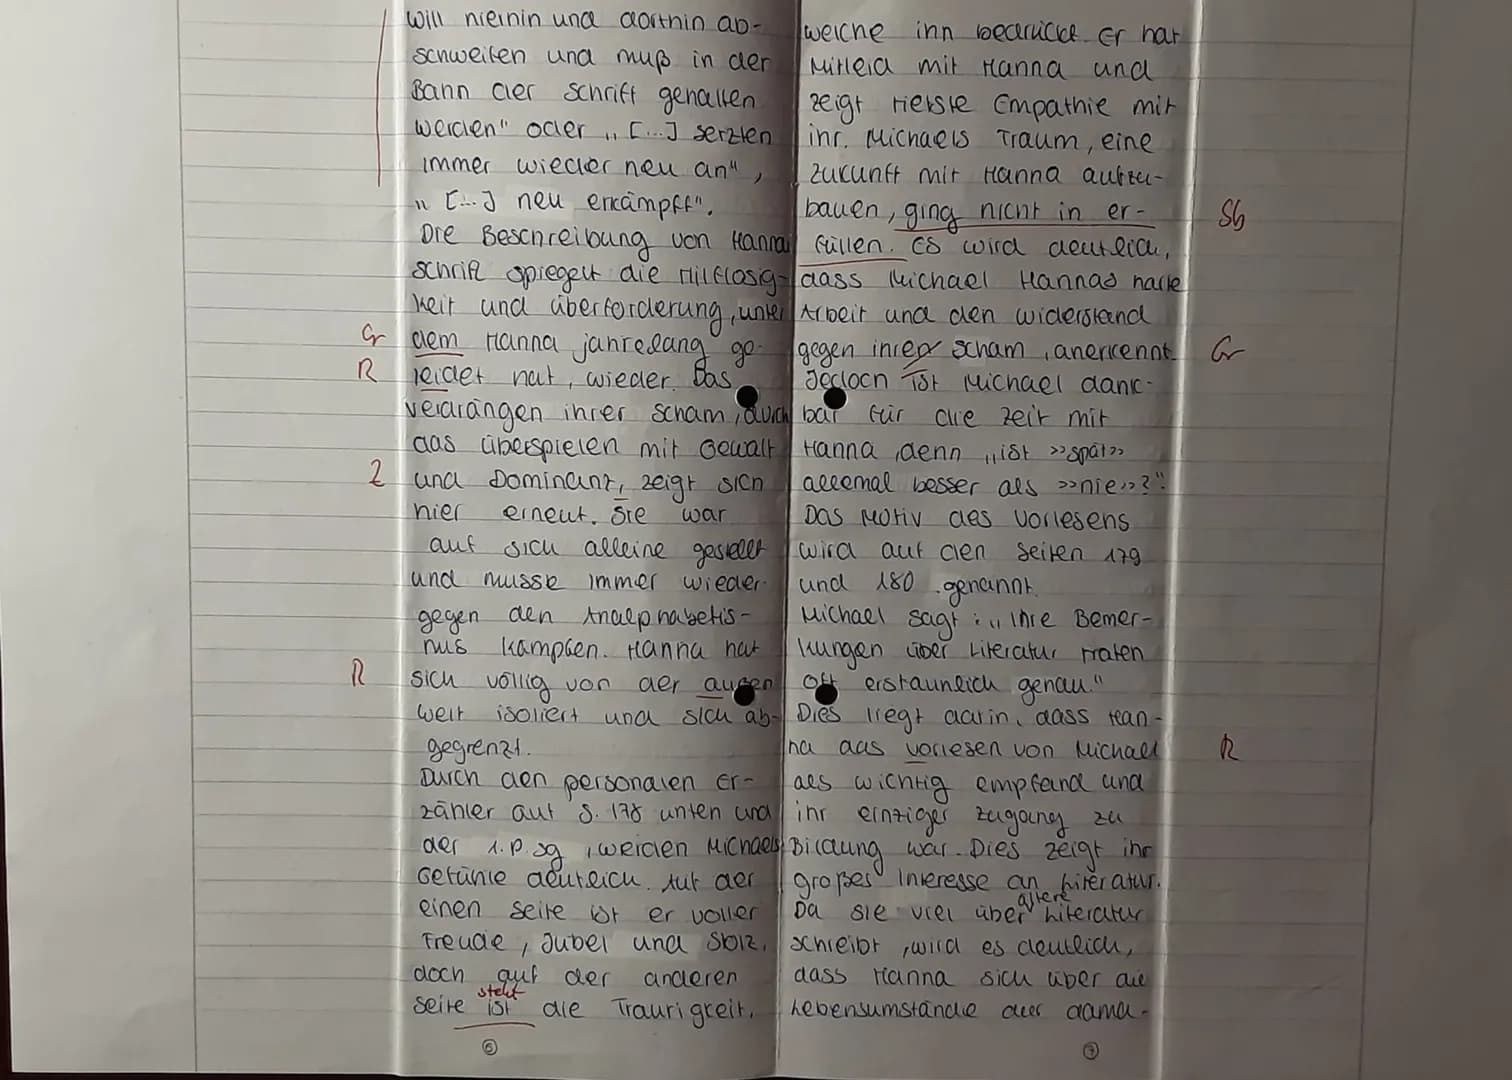 will hierhin und dorthin ab-
schweifen und muß in der
Bann der Schrift gehalten
werden" oder „ [...] setzten
immer wieder neu an",
„ [...] neu erkämpft".
Die Beschreibung von Hannas
Schrift spiegelt die Hilflosig-
keit und überforderung, unter
Gr dem Hanna jahrelang ge-
R leidet hat, wieder. Das
verdrängen ihrer Scham, durch
das überspielen mit Gewalt
Z und Dominanz, zeigt sich
hier erneut. Sie war
auf sich alleine gestellt
und musste immer wieder
gegen den Analphabetis-
mus kämpfen. Hanna hat
R sich völlig von der außen
welt isoliert und sich ab-
gegrenzt.
Durch den personalen Er-
zähler auf S. 178 unten und
der 1.P.sg, werden Michaels
Gefühle deutlich. Auf der
einen Seite ist er voller
Freude, Jubel und Stolz,
doch auf der anderen
steht
Seite ist die Traurigkeit,
6
welche ihn bedrückt. Er hat
Mitleid mit Hanna und
zeigt tiefste Empathie mit
ihr. Michaels Traum, eine
zukunft mit Hanna aufzu-
bauen, ging nicht in er- Sb
füllen. Es wird deutlich,
dass Michael Hannas harte
Arbeit und den widerstand
gegen ihrer Scham, anerkennt. Gr
Jedoch ist Michael dank-
bar für die Zeit mit
Hanna, denn „ist >>spät>>
allemal besser als >>nie>>?"
Das Motiv des Vorlesens
wird auf den Seiten 179
und 180 genannt.
Michael sagt: „Ihre Bemer-
kungen über Literatur traten
oft erstaunlich genau."
Dies liegt darin, dass Han-
na das vorlesen von Michael R
als wichtig empfand und
ihr einziger zugang zu
Bildung war. Dies zeigt ihr
großes Interesse an Literatur.
ältere
Da sie viel über Literatur
schreibt, wird es deutlich,
dass Hanna sich über die
Lebensumstände der dama-
7